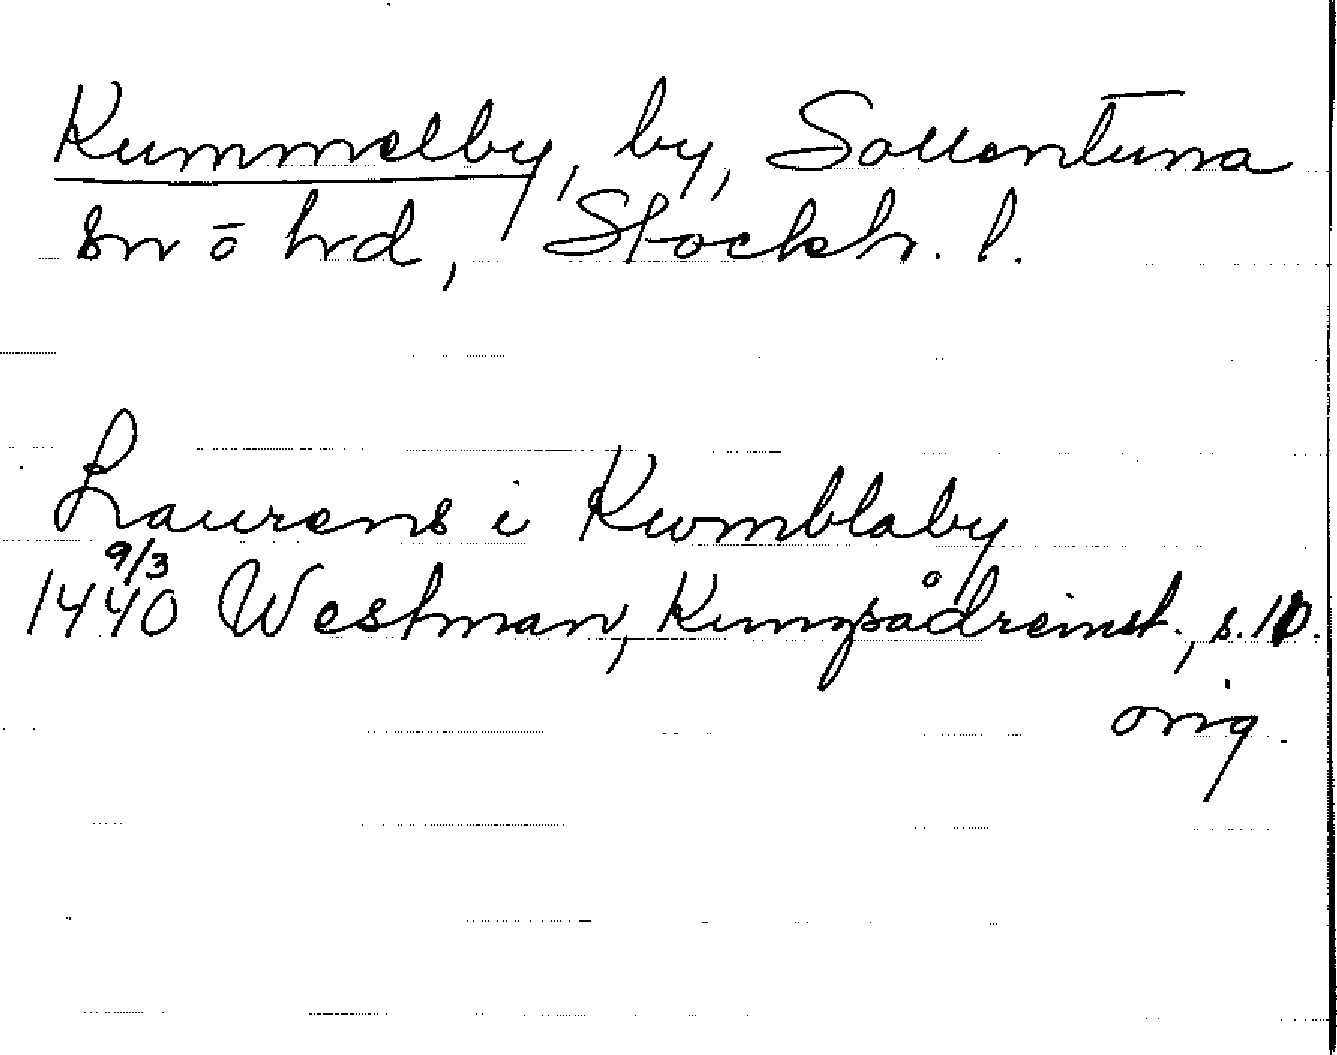 Kummelby, by, Sollentuna
sn o hrd, Stockh. l.
Laurens i Kwmblaby
9/3
1440 Westman, Kungsådreinst., s. 10.
orig.